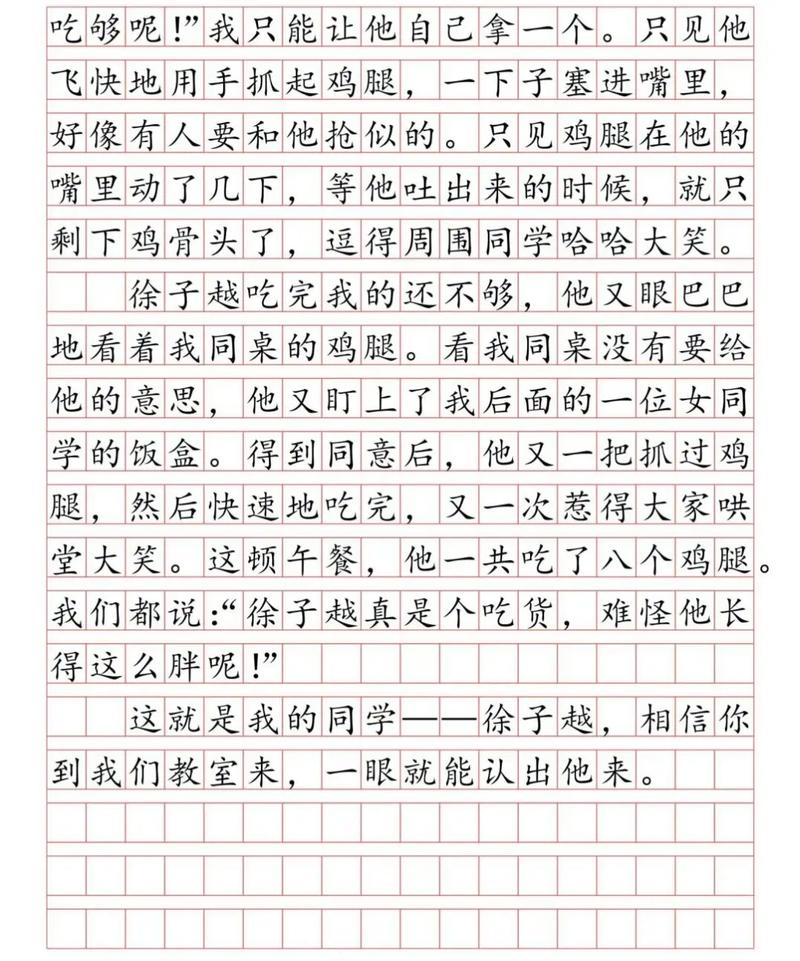 吃够呢！”我只能让他自己拿一个。只见他
飞快地用手抓起鸡腿，一下子塞进嘴里，
好像有人要和他抢似的。只见鸡腿在他的
嘴里动了几下，等他吐出来的时候，就只
剩下鸡骨头了，逗得周围同学哈哈大笑。
徐子越吃完我的还不够，他又眼巴巴
地看着我同桌的鸡腿。看我同桌没有要给
他的意思，他又盯上了我后面的一位女同
学的饭盒。得到同意后，他又一把抓过鸡
腿，然后快速地吃完，又一次惹得大家哄
堂大笑。这顿午餐，他一共吃了八个鸡腿。
我们都说：“徐子越真是个吃货，难怪他长
得这么胖呢！”
这就是我的同学——徐子越，相信你
到我们教室来，一眼就能认出他来。